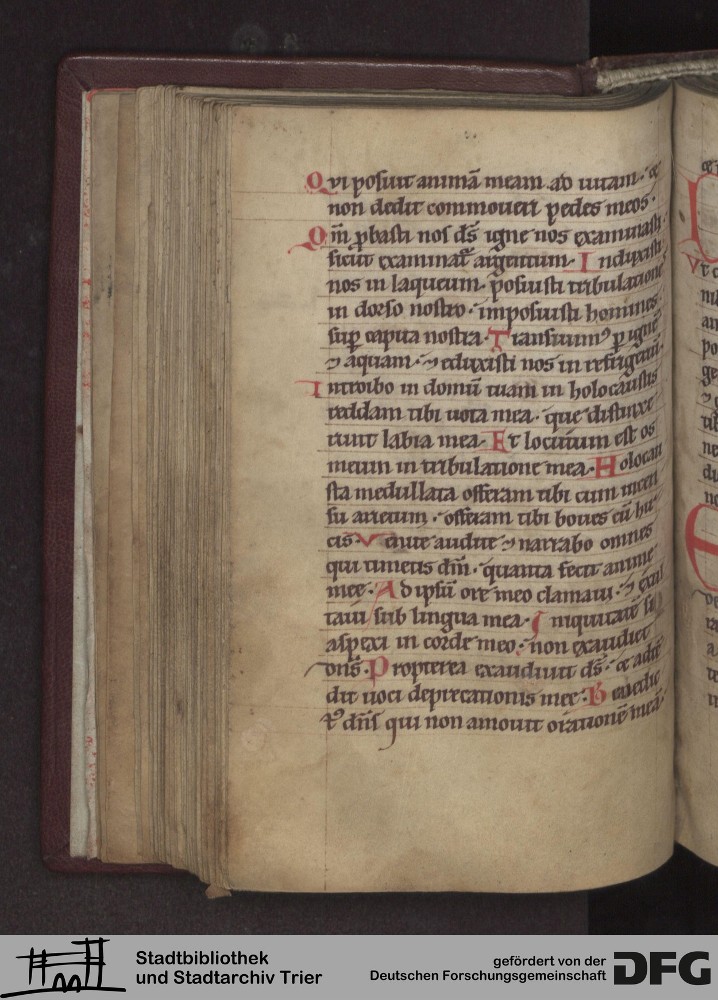 Qvi posuit animā meam ad uitam · &
non dedit commoueri pedes meos ·
Qm̄ ꝓbasti nos dš igne nos examinasti
sicut examinat᷑ argentum · Induxisti
nos in laqueum · posuisti tribulationes
in dorso nostro · imposuisti homines
suꝑ capita nostra · Transiuimꝰ ꝑ ignē
⁊ aquam · ⁊ eduxisti nos in refrigeriū ·
Introibo in domū tuam in holocaustis
reddam tibi uota mea · que distinxe
runt labia mea · Et locutum est os
meum in tribulatione mea · Holocau
sta medullata offeram tibi cum incen
su arietum · offeram tibi boues cū hir
cis · Venite audite ⁊ narrabo omnes
qui timetis dm̄ · quanta fecit anime
mee · Ad ipsū ore meo clamaui · ⁊ exal
taui sub lingua mea · Iniquitatē si
aspexi in corde meo · non exaudiet
dns̄ · Propterea exaudiuit dš · & adtē
dit uoci deprecationis mee · Benedic
tꝰ dn̄s qui non amouit orationē meā ·
Stadtbibliothek
und Stadtarchiv Trier
gefördert von der
Deutschen Forschungsgemeinschaft
DFG